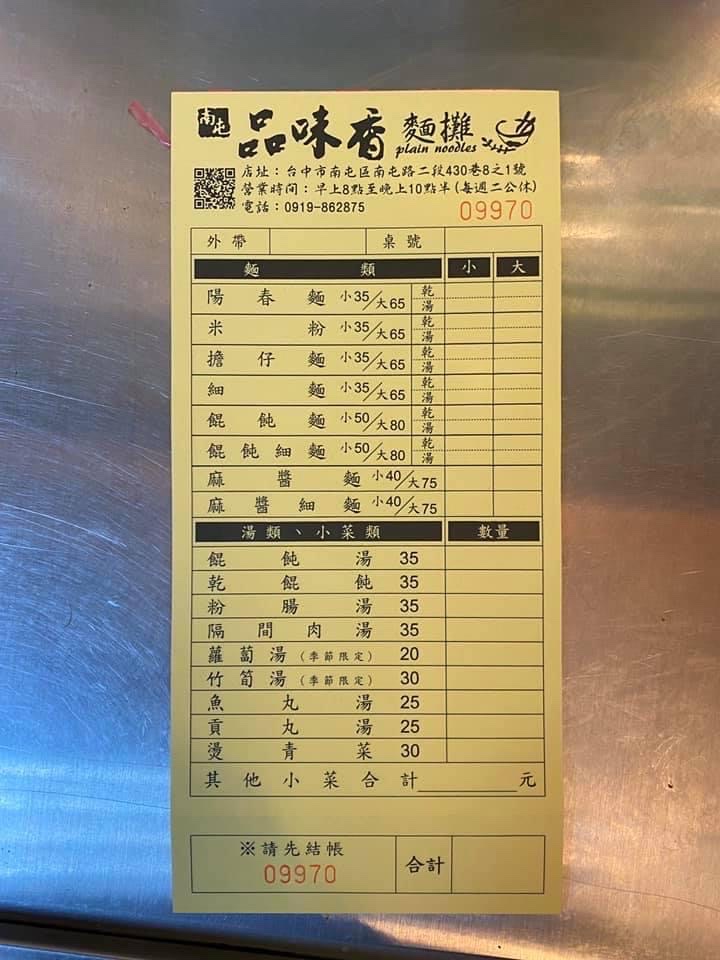 南屯 品味香 麵攤
plain noodles
店址：台中市南屯區南屯路二段430巷8之1號
營業時間：早上8點至晚上10點半(每週二公休)
電話：0919-862875
09970
外帶 桌號
麵類 小 大
陽春麵 小35/大65 乾 湯
米粉 小35/大65 乾 湯
擔仔麵 小35/大65 乾 湯
細麵 小35/大65 乾 湯
餛飩麵 小50/大80 乾 湯
餛飩細麵 小50/大80 乾 湯
麻醬麵 小40/大75
麻醬細麵 小40/大75
湯類、小菜類 數量
餛飩湯 35
乾餛飩 35
粉腸湯 35
隔間肉湯 35
蘿蔔湯(季節限定) 20
竹筍湯(季節限定) 30
魚丸湯 25
貢丸湯 25
燙青菜 30
其他小菜合計______元
※請先結帳
09970
合計